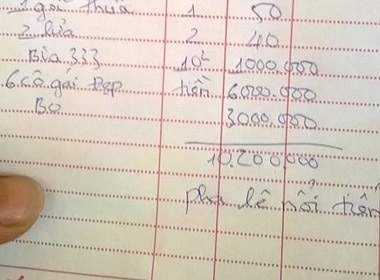 1 gói thuốc 1 50
2 lửa 2 40
Bia 333 10L 1000.000
6 cô gái đẹp tiền 6.000.000
Bo 3000.000
10.200.000
pha lê nổi tiến